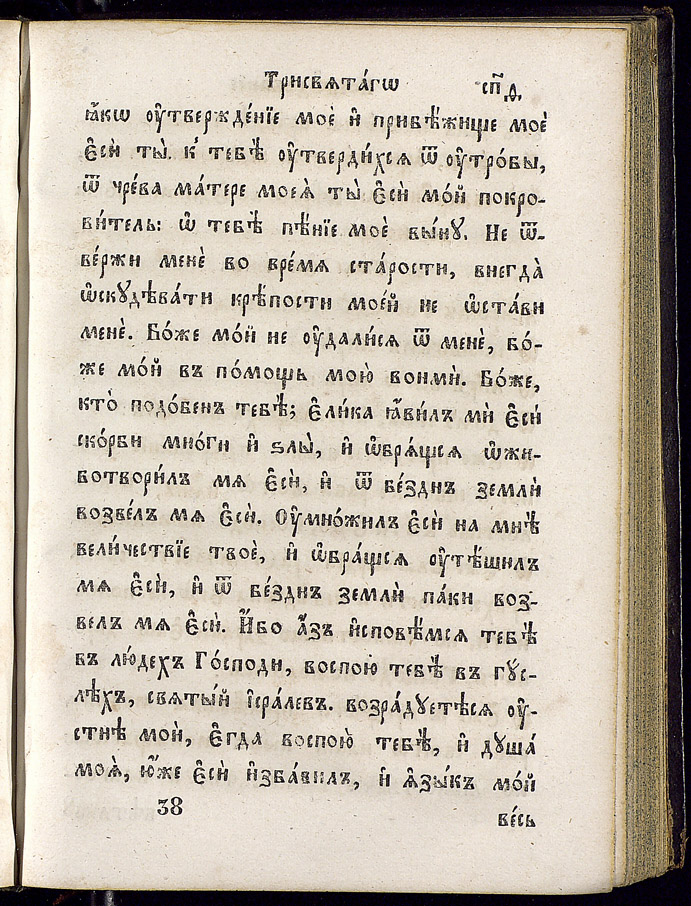 Трисвѧта́гѡ сп҃д
ꙗ҆́кѡ ᲂу҆твержде́нїе моѐ и҆ прибѣ́жище моѐ
є҆сѝ ты̀. к̾ тебѣ̀ ᲂу҆тверди́хсѧ ѿ ᲂу҆тро́бы,
ѿ чре́ва ма́тере моеѧ̀ ты̀ є҆сѝ мо́й покро-
ви́тель: ѡ҆ тебѣ̀ пѣ́нїе моѐ вы́нꙋ. Не ѿ-
ве́ржи менѐ во вре́мѧ ста́рости, внегда̀
ѡ҆скꙋдѣва́ти крѣ́пости мое́й не ѡ҆ста́ви
менѐ. Бо́же мо́й не ᲂу҆дали́сѧ ѿ менѐ, бо́-
же мо́й въ по́мощь мою̀ вонмѝ. Бо́же,
кто̀ подо́бенъ тебѣ̀; є҆ли́ка ꙗ҆ви́лъ мѝ є҆сѝ
ско́рби мно́ги и҆ ѕлы̀, и҆ ѡ҆брѧ́щсѧ ѡ҆жи-
вотвори́лъ мѧ є҆сѝ, и҆ ѿ бе́зднъ землѝ
возве́лъ мѧ є҆сѝ. Оу҆мно́жилъ є҆сѝ на мнѣ̀
вели́чествїе твоѐ, и҆ ѡ҆бра́щсѧ ᲂу҆тѣ́шилъ
мѧ є҆сѝ, и҆ ѿ бе́зднъ землѝ па́ки воз-
велъ мѧ є҆сѝ. И҆́бо а҆́зъ и҆сповѣ́мсѧ тебѣ̀
въ лю́дехъ Го́споди, воспою̀ тебѣ̀ въ гꙋс-
лѣ́хъ, свѧты́й і҆сра́левъ. возра́дꙋетѣсѧ ᲂу҆-
стнѣ̀ моѝ, є҆гда̀ воспою̀ тебѣ̀, и҆ дꙋша́
моѧ̀, ю҆́же є҆сѝ и҆зба́вилъ, и҆ ѧ҆зы́къ мо́й
38 ве́сь